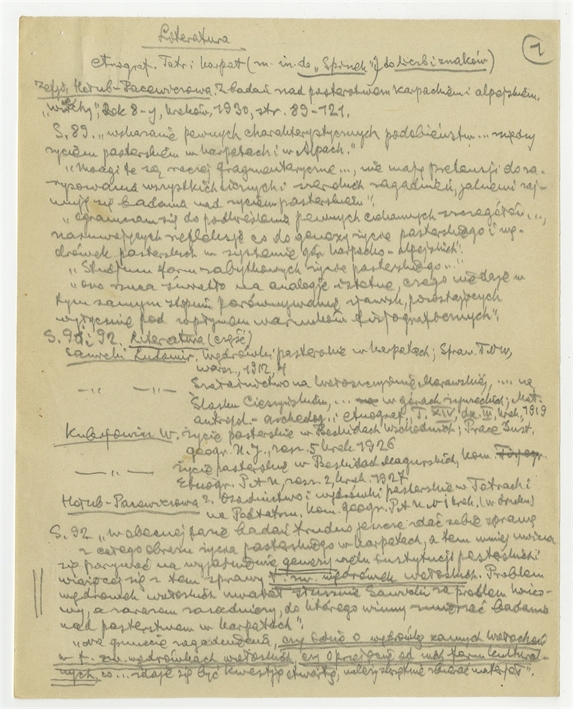 Literatura
1
etnograf. Tatr i Karpat (m. in. do „Spinek” i do liczb i znaków)
Zofja Hołub-Pacewiczowa. Z badań nad pasterstwem karpackiem i alpejskiem.
„Wierchy”, Rok 8-y, Kraków, 1930, str. 89-121.
S. 89. „wskazanie pewnych charakterystycznych podobieństw... między
życiem pasterskiem w Karpatach i w Alpach.”
„Uwagi te są raczej fragmentaryczne..., nie mają pretensji do za-
rysowania wszystkich licznych i szerokich zagadnień, jakiemi zaj-
mują się badania nad życiem pasterskiem”.
„ograniczam się do podkreślenia pewnych ciekawych szczegółów...,
nasuwających refleksje co do genezy życia pasterskiego i wę-
drówek pasterskich w systemie gór karpacko-alpejskich”.
„Studjum form zabytkowych życia pasterskiego...”
„ono rzuca światło na analogje istotne, czego nie daje w
tym samym stopniu porównywanie zjawisk, pozostających
wyłącznie pod wpływem warunków fizjograficznych”.
S. 91 i 92. Literatura (część)
Sawicki Ludomir. Wędrówki pasterskie w Karpatach; Spraw. T.N.W.,
Warsz., 1912, 4
—„— —„— Szałaśnictwo na Wołoszczyźnie Morawskiej, ... na
Śląsku Cieszyńskim, ... w górach żywieckich; Mat.
antropol.-archeolog. i etnograf., T. XIV, dz. II, Krak. 1919
Kubijowicz W. Życie pasterskie w Beskidach Wschodnich; Prace Inst.
geogr. U. J., zesz. 5 Krak 1926
—„— Życie pasterskie w Beskidach Magurskich, Kom.
Etnogr. P.A.U., zesz. 2, Krak. 1927
Hołub-Pacewiczowa Z. Osadnictwo i wędrówki pasterskie w Tatrach i
na Podtatrzu, Kom. geogr. P.A.U. Krak. (w druku)
S. 92 „w obecnej fazie badań trudno jeszcze zdać sobie sprawę
z całego obrazu życia pasterskiego w Karpatach, a tem mniej można
się porywać na wyjaśnienie genezy wielu instytucji pasterskich
wiążącej się z tem sprawy t. zw. wędrówek wołoskich. Problem
wędrówek wołoskich uważał słusznie Sawicki za problem
a zarazem zasadniczy, do którego winny zmierzać badania
nad pasterstwem w Karpatach”.
„na gruncie zagadnienia, czy idzie o wędrówkę samych Wołochów
w t. zw. wędrówkach wołoskich czy o przejęcie od nich form kultural-
nych, co... zdaje się być kwestją otwartą, należy skrzętnie zbierać materjał”.